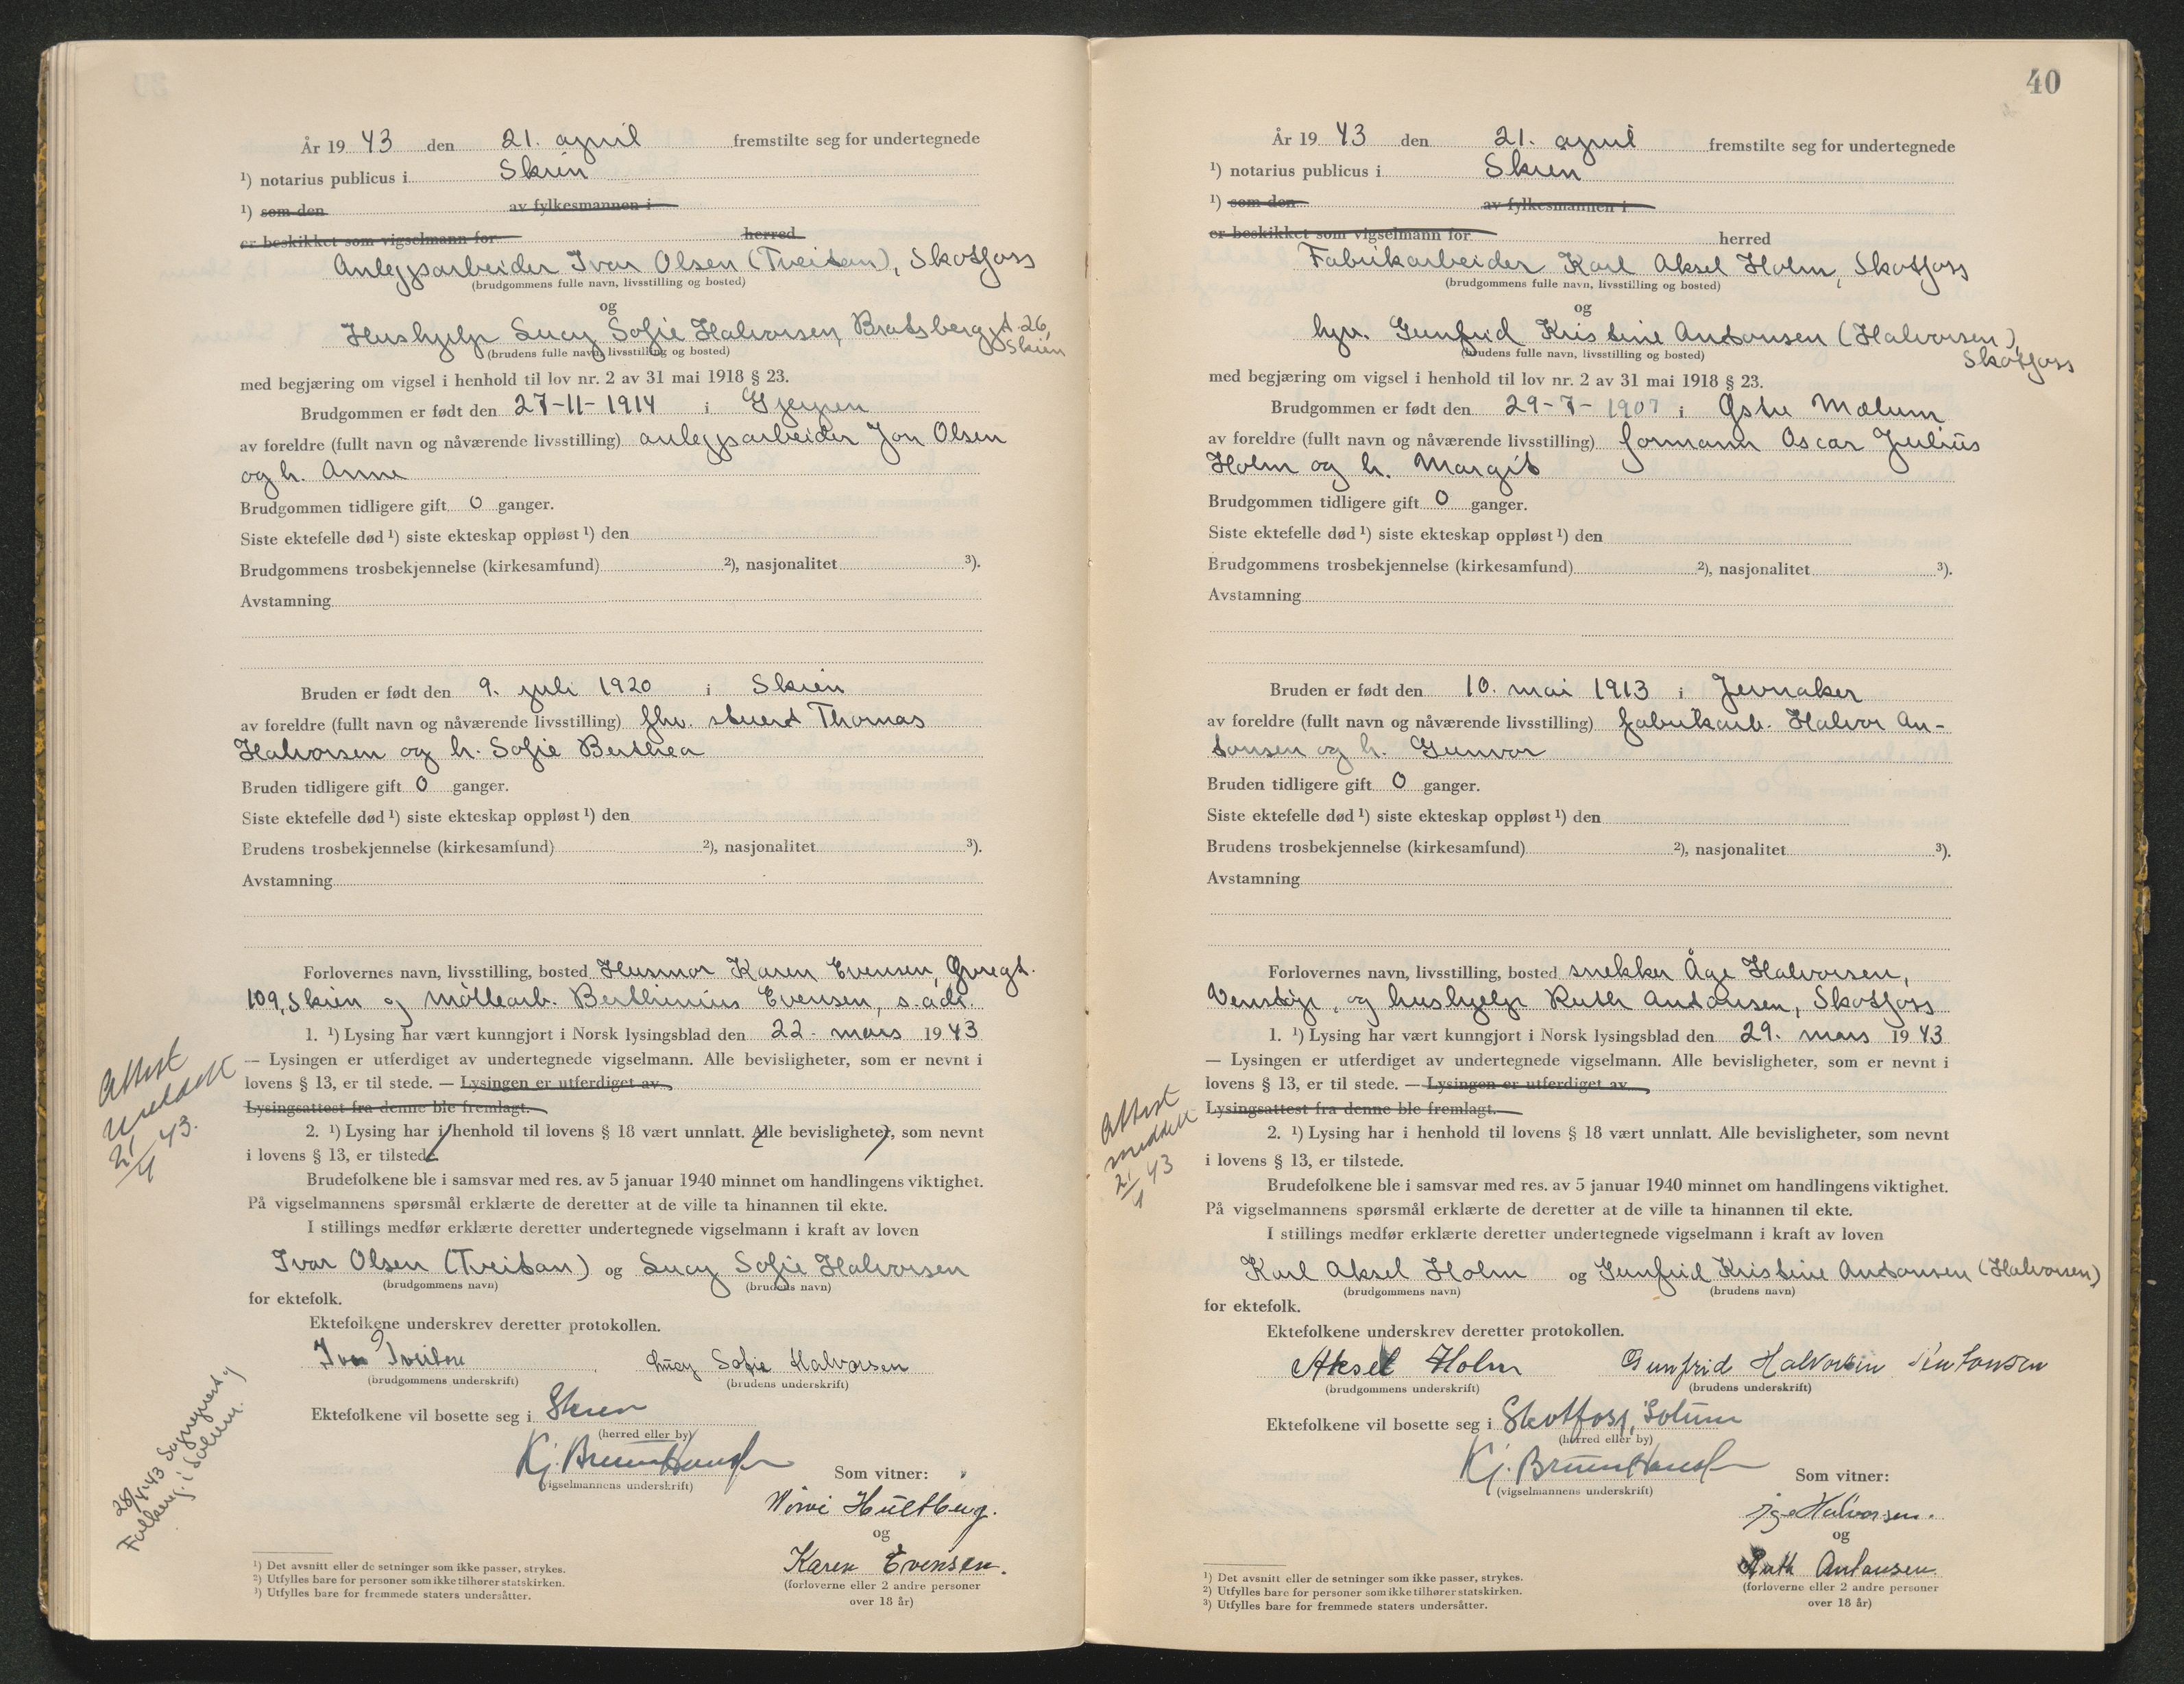 År 19 43 den 21. april fremstilte seg for undertegnede
¹) notarius publicus i Skien
¹) som den av fylkesmannen i
er beskikket som vigselmann for herred
Anleggsarbeider Ivar Olsen (Tveitan), Skotfoss
(brudgommens fulle navn, livsstilling og bosted)
og
Hushjelp Lucy Sofie Halvorsen, Bratsbergt. 26,
Skien
(brudens fulle navn, livsstilling og bosted)
med begjæring om vigsel i henhold til lov nr. 2 av 31 mai 1918 § 23.
Brudgommen er født den 27-11-1914 i Gjerpen
av foreldre (fullt navn og nåværende livsstilling) anleggsarbeider Jon Olsen
og h. Anne
Brudgommen tidligere gift 0 ganger.
Siste ektefelle død ¹) siste ekteskap oppløst ¹) den
Brudgommens trosbekjennelse (kirkesamfund) ²), nasjonalitet ³).
Avstamning
Bruden er født den 9. juli 1920 i Skien
av foreldre (fullt navn og nåværende livsstilling) fhv. stuert Thomas
Halvorsen og h. Sofie Berthea
Bruden tidligere gift 0 ganger.
Siste ektefelle død ¹) siste ekteskap oppløst ¹) den
Brudens trosbekjennelse (kirkesamfund) ²), nasjonalitet ³).
Avstamning
Forlovernes navn, livsstilling, bosted Husmor Karen Evensen,
109, Skien og møllearb. Berthinius Evensen, s. adr.
1. ¹) Lysing har vært kunngjort i Norsk lysingsblad den 22. mars 19 43
— Lysingen er utferdiget av undertegnede vigselmann. Alle bevisligheter, som er nevnt i
lovens § 13, er til stede. — Lysingen er utferdiget av
Lysingsattest fra denne ble fremlagt.
2. ¹) Lysing har i henhold til lovens § 18 vært unnlatt. Alle bevisligheter, som nevnt
i lovens § 13, er tilstede.
Attest
meddelt
21/4 43.
Brudefolkene ble i samsvar med res. av 5 januar 1940 minnet om handlingens viktighet.
På vigselmannens spørsmål erklærte de deretter at de ville ta hinannen til ekte.
I stillings medfør erklærte deretter undertegnede vigselmann i kraft av loven
Ivar Olsen (Tveitan) og Lucy Sofie Halvorsen
(brudgommens navn) (brudens navn)
for ektefolk.
Ektefolkene underskrev deretter protokollen.
Ivar Tveitan Lucy Sofie Halvorsen
(brudgommens underskrift) (brudens underskrift)
Ektefolkene vil bosette seg i Skien
(herred eller by)
Kj. Bruun Hansen
(vigselmannens underskrift)
Som vitner:
Hultberg.
og
Karen Evensen.
(forloverne eller 2 andre personer
over 18 år)
28/4 43 Sogneprest og
Folkereg. i Solum.
¹) Det avsnitt eller de setninger som ikke passer, strykes.
²) Utfylles bare for personer som ikke tilhører statskirken.
³) Utfylles bare for fremmede staters undersåtter.
40
År 19 43 den 21. april fremstilte seg for undertegnede
¹) notarius publicus i Skien
¹) som den av fylkesmannen i
er beskikket som vigselmann for herred
Fabrikarbeider Karl Aksel Holm, Skotfoss
(brudgommens fulle navn, livsstilling og bosted)
og
hjv. Gunfrid Kristine Antonsen (Halvorsen),
Skotfoss
(brudens fulle navn, livsstilling og bosted)
med begjæring om vigsel i henhold til lov nr. 2 av 31 mai 1918 § 23.
Brudgommen er født den 29-7-1907 i Østre Mælum
av foreldre (fullt navn og nåværende livsstilling) formann Oscar Julius
Holm og h. Margit
Brudgommen tidligere gift 0 ganger.
Siste ektefelle død ¹) siste ekteskap oppløst ¹) den
Brudgommens trosbekjennelse (kirkesamfund) ²), nasjonalitet ³).
Avstamning
Bruden er født den 10. mai 1913 i Jevnaker
av foreldre (fullt navn og nåværende livsstilling) fabrikarb. Halvor An-
tonsen og h. Gunvor
Bruden tidligere gift 0 ganger.
Siste ektefelle død ¹) siste ekteskap oppløst ¹) den
Brudens trosbekjennelse (kirkesamfund) ²), nasjonalitet ³).
Avstamning
Forlovernes navn, livsstilling, bosted snekker Åge Halvorsen,
Venstøp, og hushjelp Ruth Antonsen, Skotfoss
1. ¹) Lysing har vært kunngjort i Norsk lysingsblad den 29. mars 19 43
— Lysingen er utferdiget av undertegnede vigselmann. Alle bevisligheter, som er nevnt i
lovens § 13, er til stede. — Lysingen er utferdiget av
Lysingsattest fra denne ble fremlagt.
2. ¹) Lysing har i henhold til lovens § 18 vært unnlatt. Alle bevisligheter, som nevnt
i lovens § 13, er tilstede.
Attest
meddelt
21/4 43
Brudefolkene ble i samsvar med res. av 5 januar 1940 minnet om handlingens viktighet.
På vigselmannens spørsmål erklærte de deretter at de ville ta hinannen til ekte.
I stillings medfør erklærte deretter undertegnede vigselmann i kraft av loven
Karl Aksel Holm og Gunfrid Kristine Antonsen (Halvorsen)
(brudgommens navn) (brudens navn)
for ektefolk.
Ektefolkene underskrev deretter protokollen.
Aksel Holm Gunfrid Halvorsen Antonsen
(brudgommens underskrift) (brudens underskrift)
Ektefolkene vil bosette seg i Skotfoss, Solum
(herred eller by)
Kj. Bruun Hansen
(vigselmannens underskrift)
Som vitner:
Åge Halvorsen.
og
Ruth Antonsen.
(forloverne eller 2 andre personer
over 18 år)
¹) Det avsnitt eller de setninger som ikke passer, strykes.
²) Utfylles bare for personer som ikke tilhører statskirken.
³) Utfylles bare for fremmede staters undersåtter.